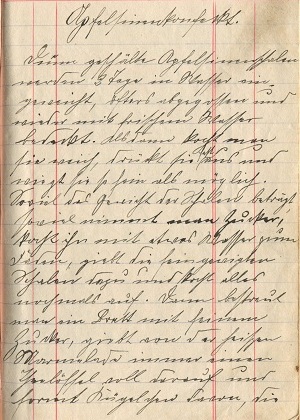 Apfelsinenkonfekt.
Dünn geschälte Apfelsinenschalen
werden 3 Tage in Wasser ein-
geweicht, öfters abgegossen und
wieder mit frischem Wasser
bedeckt. Alsdann kocht man
sie weich, drückt sie aus und
wiegt sie so fein als möglich.
Soviel das Gewicht der Schalen beträgt
soviel nimmt man Zucker,
kocht ihn mit etwas Wasser zum
Faden, gibt die feingewiegten
Schalen dazu und kocht alles
nochmals auf. Dann bestreut
man ein Brett mit feinem
Zucker, gibt von der heißen
Marmelade immer einen
Theelöffel voll darauf und
formt Kügelchen davon, die